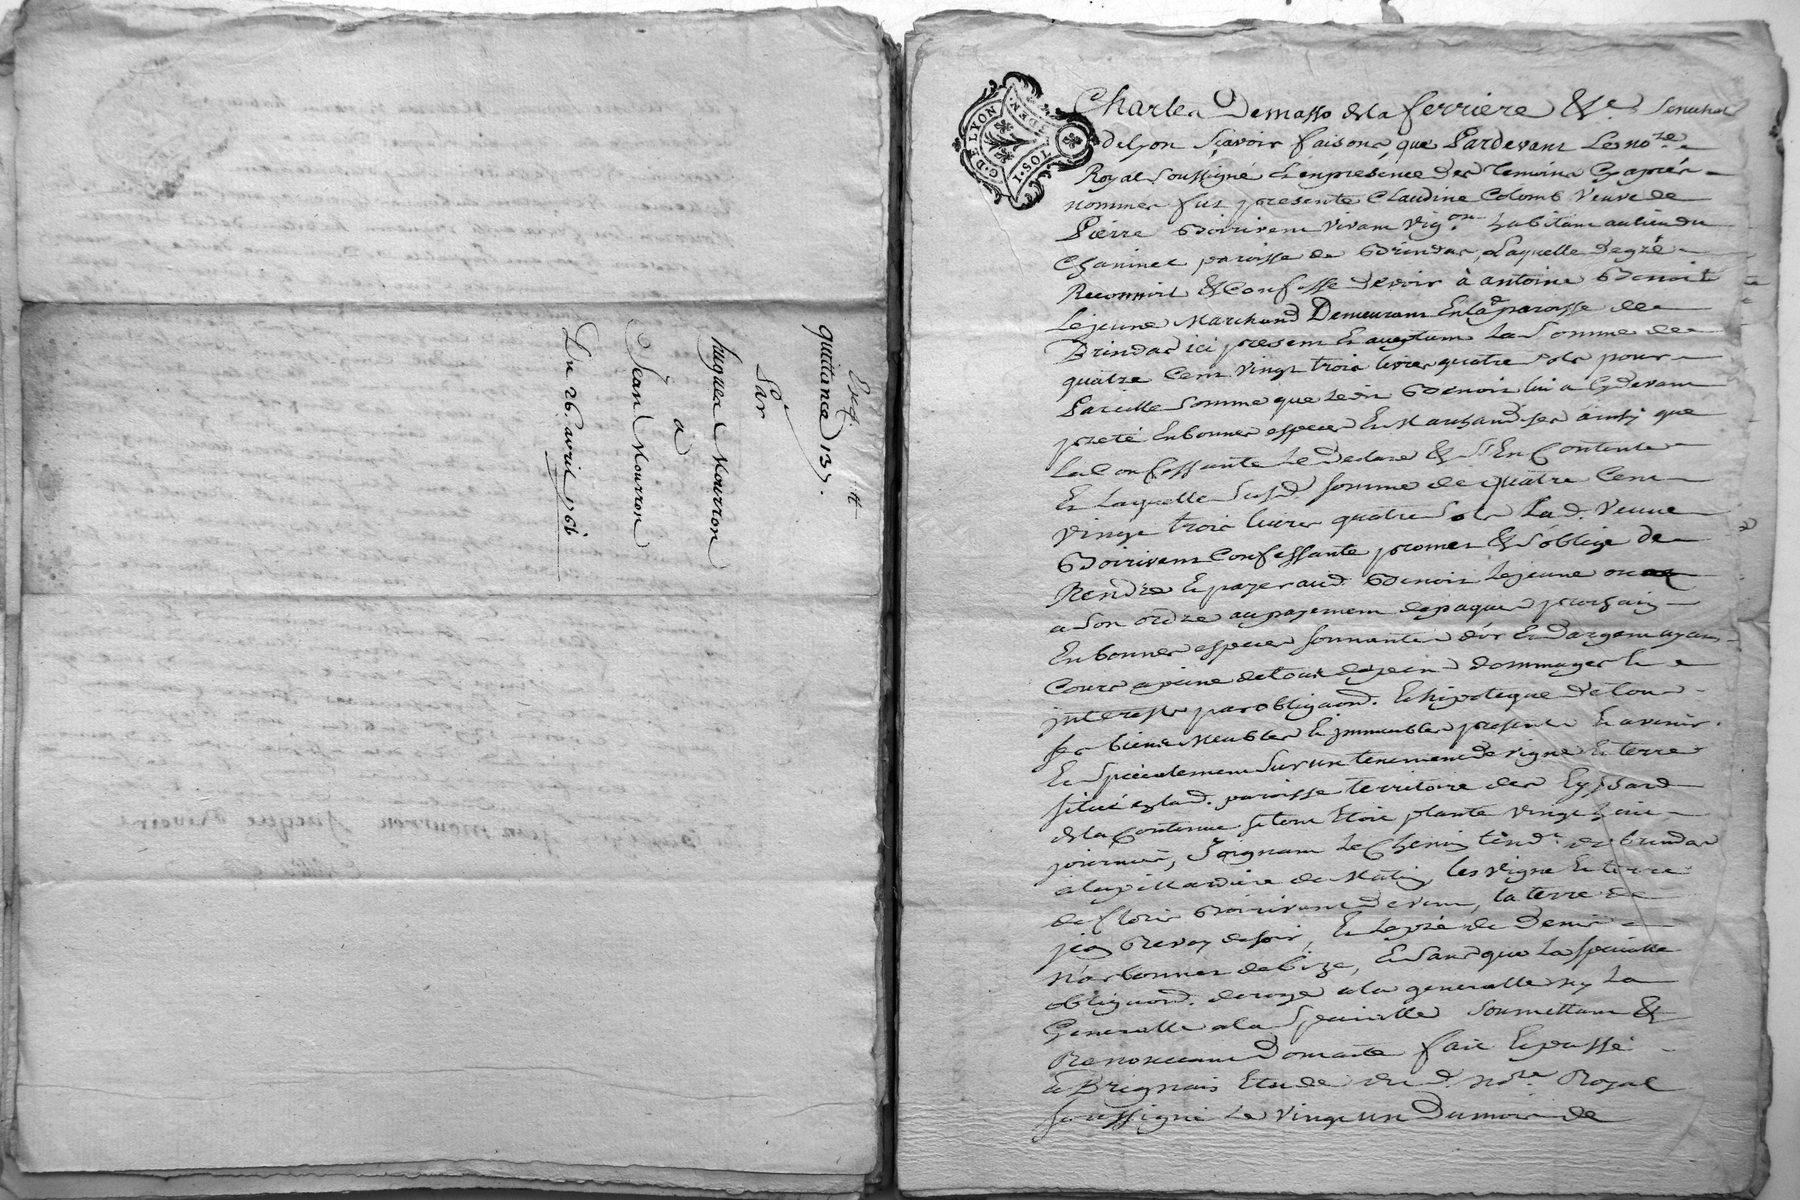 Exp.t
quittance 13 s.
Par
hugues Mourron
a
Jean Mourron
Du 26. avril 1761
G. DE LYON
1 SOL
DEN.
Charles Demasso de la ferriere &c. Senechal
de lyon sçavoir faisons, que Pardevant Le no.re
Royal soussigné et en presence des Temoins cy apres
nommes fut presente Claudine Colomb veuve de
Pierre Boiriven vivant vig.on habitant au lieu du
Chaninet paroisse de Brindas, Laquelle de gré
Reconnoit & Confesse devoir à antoine Benoit
Lejeune Marchand Demeurant En lad. paroisse de
Brindas ici present et acceptant La Somme de
quatre Cent vingt trois livres quatre sols pour
Pareille Somme que ledit Benoit lui a cy devant
preté En bonnes especes et Marchandises ainsi que
la Confessante le declare & s'En Contente
Et Laquelle susd. somme de quatre Cent
vingt trois livres quatre Sols La d. veuve
Boirivent Confessante promet & s'oblige de
Rendre et payer aud. Benoit Lejeune ou
a son ordre au payement de paques prochain
En bonnes especes sonnantes d'or et d'argent ayant
Cours a peine de tous depens dommages et
interests par obligaon. et hipoteque de tous
ses biens Meubles et immeubles presents et avenir.
Et specialement sur un tenement de vigne et terre
situé en lad. paroisse territoire des
de la Contenue si tout etoit planté vingt huit
journées, Joignant le Chemin tend.t de brindas
a de Matin, les vigne et terre
de Boirivent de vent, la terre de
de soir, et le pré de Denis
de bize, Et sans que la specialle
obligaon. deroge a la generalle ny La
Generalle a la specialle soumettant &
Renonceant Dont acte fait et passé
à Brignais Etude du d. no.re Royal
soussigné Le vingt un Du mois de